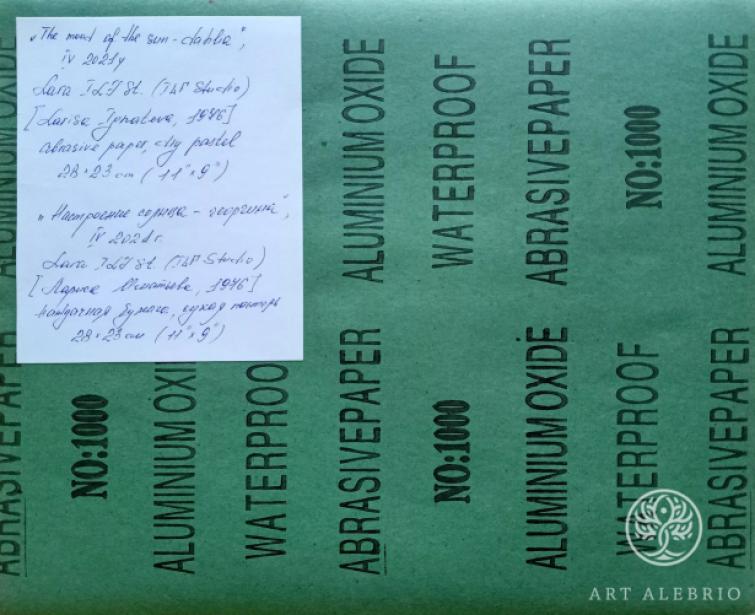 „The mood of the sun - dahlia",
IV 2021y
Lara ILIF St. (ILIF Studio)
[Larisa Ignateva, 1976]
abrasive paper, dry pastel
28×23 cm (11"×9")
„Настроение солнца - георгина",
IV 2021г.
Lara ILIF St. (ILIF Studio)
[Лариса Игнатьева, 1976]
наждачная бумага, сухая пастель
28×23 см (11"×9")
ALUMINIUM OXIDE
ABRASIVEPAPER
NO:1000
ALUMINIUM OXI
WATERPROO
ALUMINIUM OXIDE
ABRASIVEPAPER
WATERPROOF
NO:1000
ABRASIVEPAPER
ALUMINIUM OXIDE
NO:1000
WATERPROOF
ALUMINIUM OXIDE
ABRASIVEPAPER
ART ALEBRIO